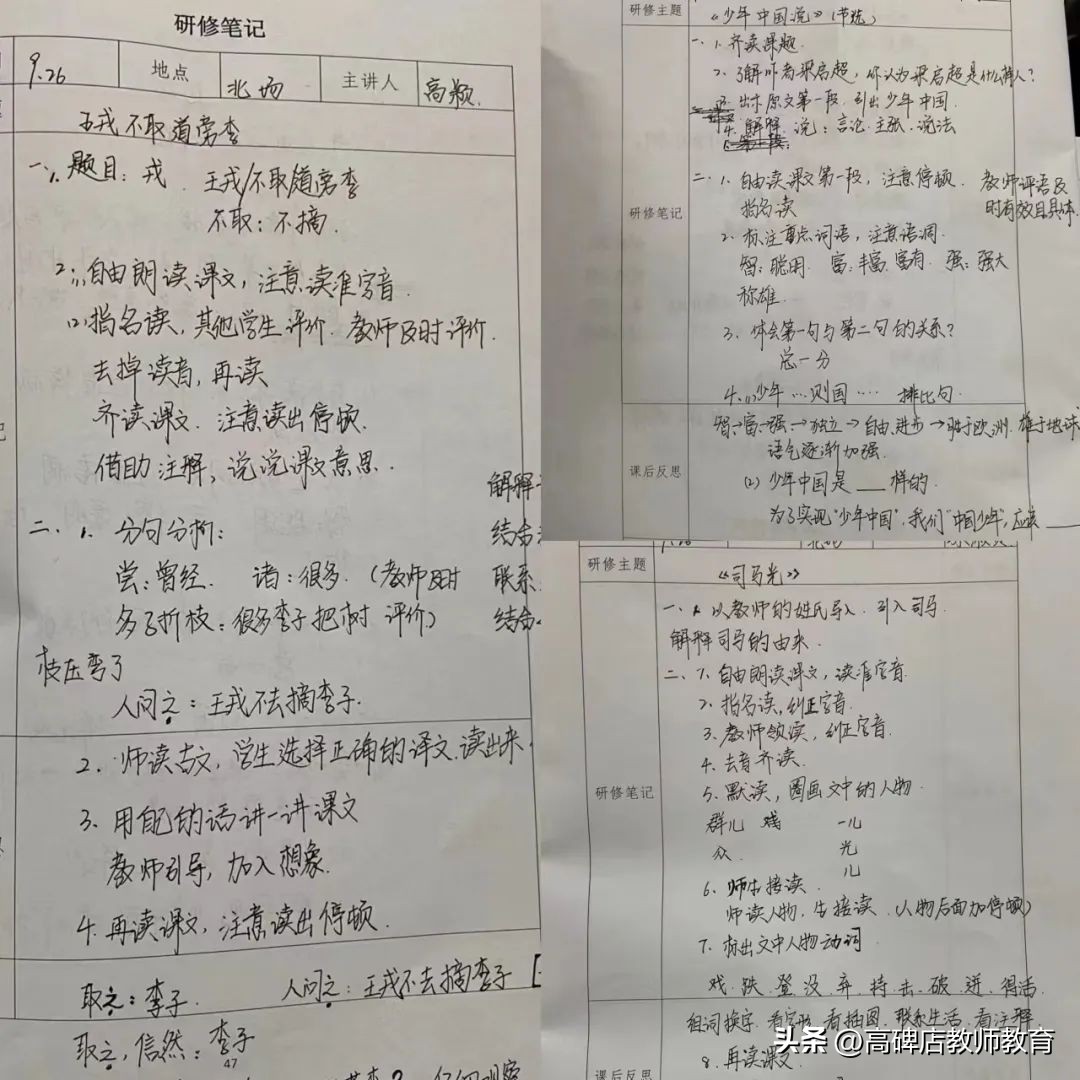 研修笔记
9.26 地点 北场 主讲人 高颖
王戎不取道旁李
一、1. 题目：戎 王戎/不取道旁李
不取：不摘.
2. (1)自由朗读课文，注意读准字音.
(2)指名读，其他学生评价. 教师及时评价.
去掉读音，再读
齐读课文. 注意读出停顿.
借助注释，说说课文意思.
解释
二. 1. 分句分析：
结合
尝：曾经. 诸：很多. (教师及时
联系
多子折枝：很多李子把树 评价)
结合
枝压弯了
人问之：王戎不去摘李子.
2. 师读古文，学生选择正确的译文.读出来.
3. 用自己的话讲一讲课文
教师引导，加入想象.
4. 再读课文，注意读出停顿.
取之：李子. 人问之：王戎不去摘李子
取之，信然：李子
47
研修主题
《少年中国说》(节选)
研修笔记
一. 1. 齐读课题.
2. 了解作者梁启超，你认为梁启超是什么样人？
3. 出示原文第一段. 引出少年中国.
4. 解释. 说：言论. 主张. 说法
二. 1. 自由读课文第一段，注意停顿. 教师评语及
指名读 时有效且具体.
2. 标注重点词语，注意语调.
智：聪明. 富：丰富.富有. 强：强大
称雄.
3. 体会第一句与第二句的关系？
总一分
4.(1)少年…则国… 排比句.
课后反思
智→富→强→独立→自由.进步→胜于欧洲.雄于地球
语气逐渐加强.
(2) 少年中国是___样的.
为了实现"少年中国"，我们"中国少年"，应该___
研修主题
《司马光》
研修笔记
一、1. 以教师的姓氏导入. 引入司马.
解释司马的由来.
二、1. 自由朗读课文，读准字音.
2. 指名读，纠正字音.
3. 教师领读，纠正字音.
4. 去音齐读.
5. 默读，圈画文中的人物.
群儿 戏 一儿
众. 光
儿
6. 师生接读.
师读人物，生接读.(人物后面加停顿)
7. 标出文中人物动词
戏.跌.登.没.弃.持.击.破.迸.得活.
课后反思
组词换字. 看字形. 看插图. 联系生活. 看注释.
8. 再读课文.
头条 @高碑店教师教育